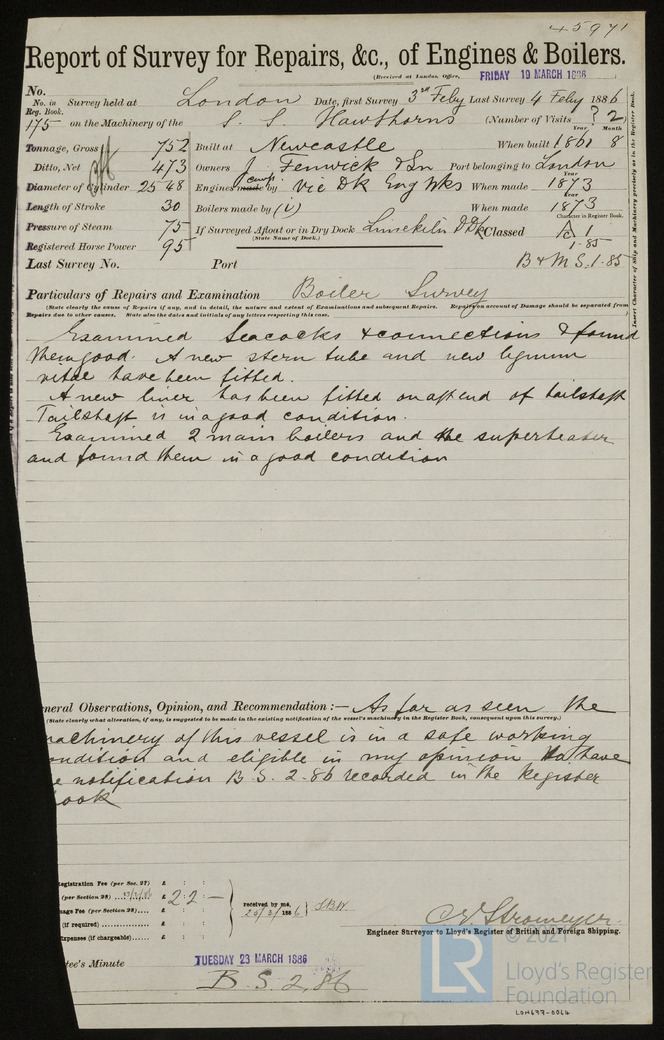 45971
Report of Survey for Repairs, &c., of Engines & Boilers.
(Received at London Office, FRIDAY 19 MARCH 1886
No.
No. in Reg. Book. Survey held at London Date, first Survey 3rd Feby Last Survey 4 Feby 1886
175 on the Machinery of the S. S. Hawthorns (Number of Visits ? 2)
Tonnage, Gross 752 Built at Newcastle When built Year 1860 Month 8
Ditto, Net 473 Owners J. Fenwick & Sn Port belonging to London
Diameter of Cylinder 25 48 Engines made by Vic Dk Eng Wks When made Year 1873
Length of Stroke 30 Boilers made by (i) When made Year 1873
Pressure of Steam 75 If Surveyed Afloat or in Dry Dock Limekiln D Dk Classed Character in Register Book. A 1
(State Name of Dock.) 1.85
Registered Horse Power 95
Last Survey No. Port B & M S. 1.85
Particulars of Repairs and Examination Boiler Survey
(State clearly the cause of Repairs if any, and in detail, the nature and extent of Examinations and subsequent Repairs. Repairs on account of Damage should be separated from
Repairs due to other causes. State also the dates and initials of any letters respecting this case.
Examined Seacocks & connections & found
them good. A new stern tube and new lignum
vitae have been fitted.
A new liner has been fitted on aft end of tailshaft
Tailshaft is in a good condition.
Examined 2 main boilers and the superheater
and found them in a good condition
neral Observations, Opinion, and Recommendation :— As far as seen the
(State clearly what alteration, if any, is suggested to be made in the existing notification of the vessel's machinery in the Register Book, consequent upon this survey.)
achinery of this vessel is in a safe working
ondition and eligible in my opinion to have
e notification B. S. 2.86 recorded in the Register
ook
Registration Fee (per Sec. 27) £ : :
(per Section 28) £ 2 : 2 : —
mage Fee (per Section 28) £ : :
(if required) £ : :
Expenses (if chargeable) £ : :
received by me,
20/3/1886
C E Stromeyer
Engineer Surveyor to Lloyd's Register of British and Foreign Shipping.
tee's Minute TUESDAY 23 MARCH 1886
B. S. 2, 86
© 2021
LR Lloyd's Register
Foundation
LON677-0064
Insert Character of Ship and Machinery precisely as in the Register Book.